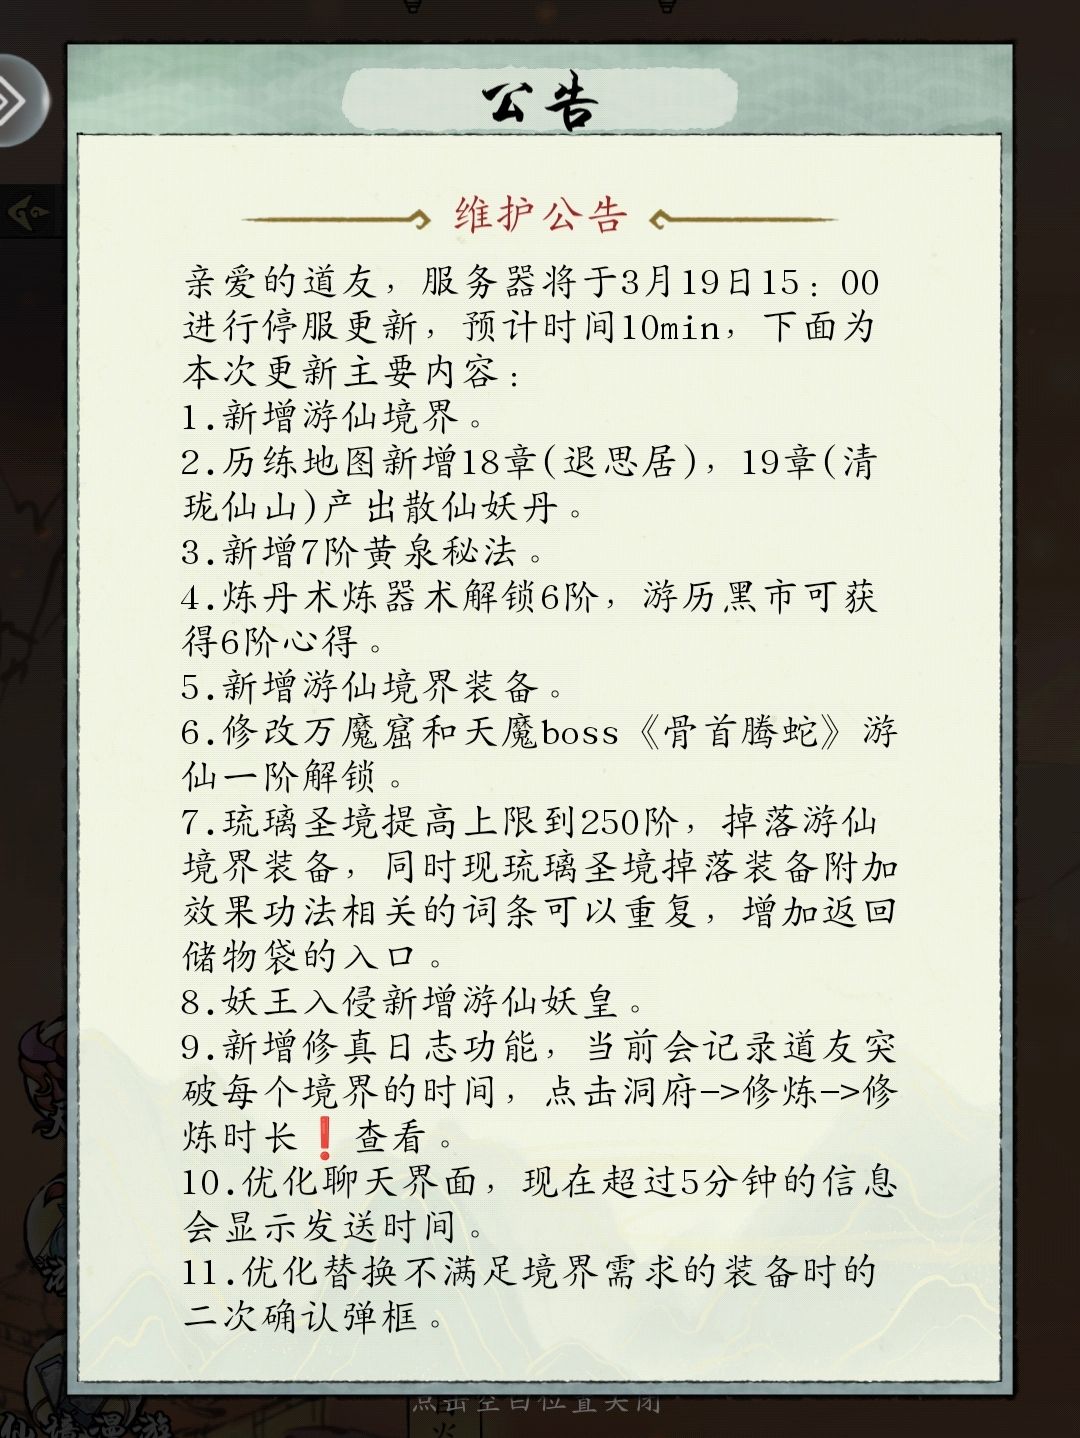 公告
维护公告
亲爱的道友，服务器将于3月19日15：00
进行停服更新，预计时间10min，下面为
本次更新主要内容：
1.新增游仙境界。
2.历练地图新增18章(退思居)，19章(清
珑仙山)产出散仙妖丹。
3.新增7阶黄泉秘法。
4.炼丹术炼器术解锁6阶，游历黑市可获
得6阶心得。
5.新增游仙境界装备。
6.修改万魔窟和天魔boss《骨首腾蛇》游
仙一阶解锁。
7.琉璃圣境提高上限到250阶，掉落游仙
境界装备，同时现琉璃圣境掉落装备附加
效果功法相关的词条可以重复，增加返回
储物袋的入口。
8.妖王入侵新增游仙妖皇。
9.新增修真日志功能，当前会记录道友突
破每个境界的时间，点击洞府->修炼->修
炼时长❗查看。
10.优化聊天界面，现在超过5分钟的信息
会显示发送时间。
11.优化替换不满足境界需求的装备时的
二次确认弹框。
点击空白位置关闭